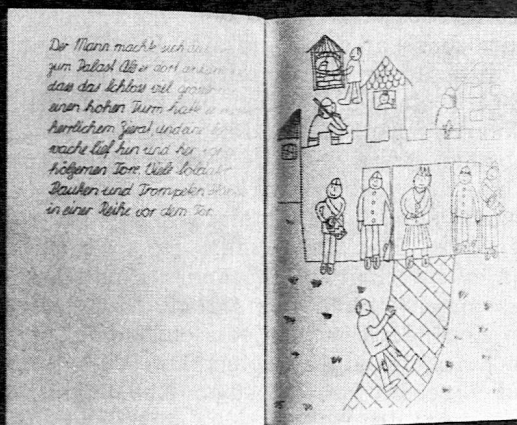 Der Mann machte sich
zum Palast. Als er dort ankam
dass das Schloss viel
einen hohen Turm hatte
herrlichem Zierat und
wache lief hin und her
hölzernen Tore. Viele
Pauken und Trompeten
in einer Reihe vor dem Tor.